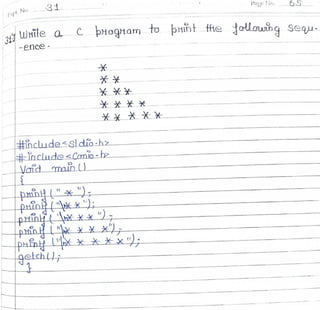 Expt. No. 31 Page No. 65
317 Write a C program to print the following sequ-
-ence.
*
* *
* * *
* * * *
* * * * *
#include<stdio.h>
#include<conio.h>
Void main()
{
printf (" * ");
printf ("\n* *");
printf ("\n* * *");
printf ("\n* * * *");
printf ("\n* * * * *");
getch();
}